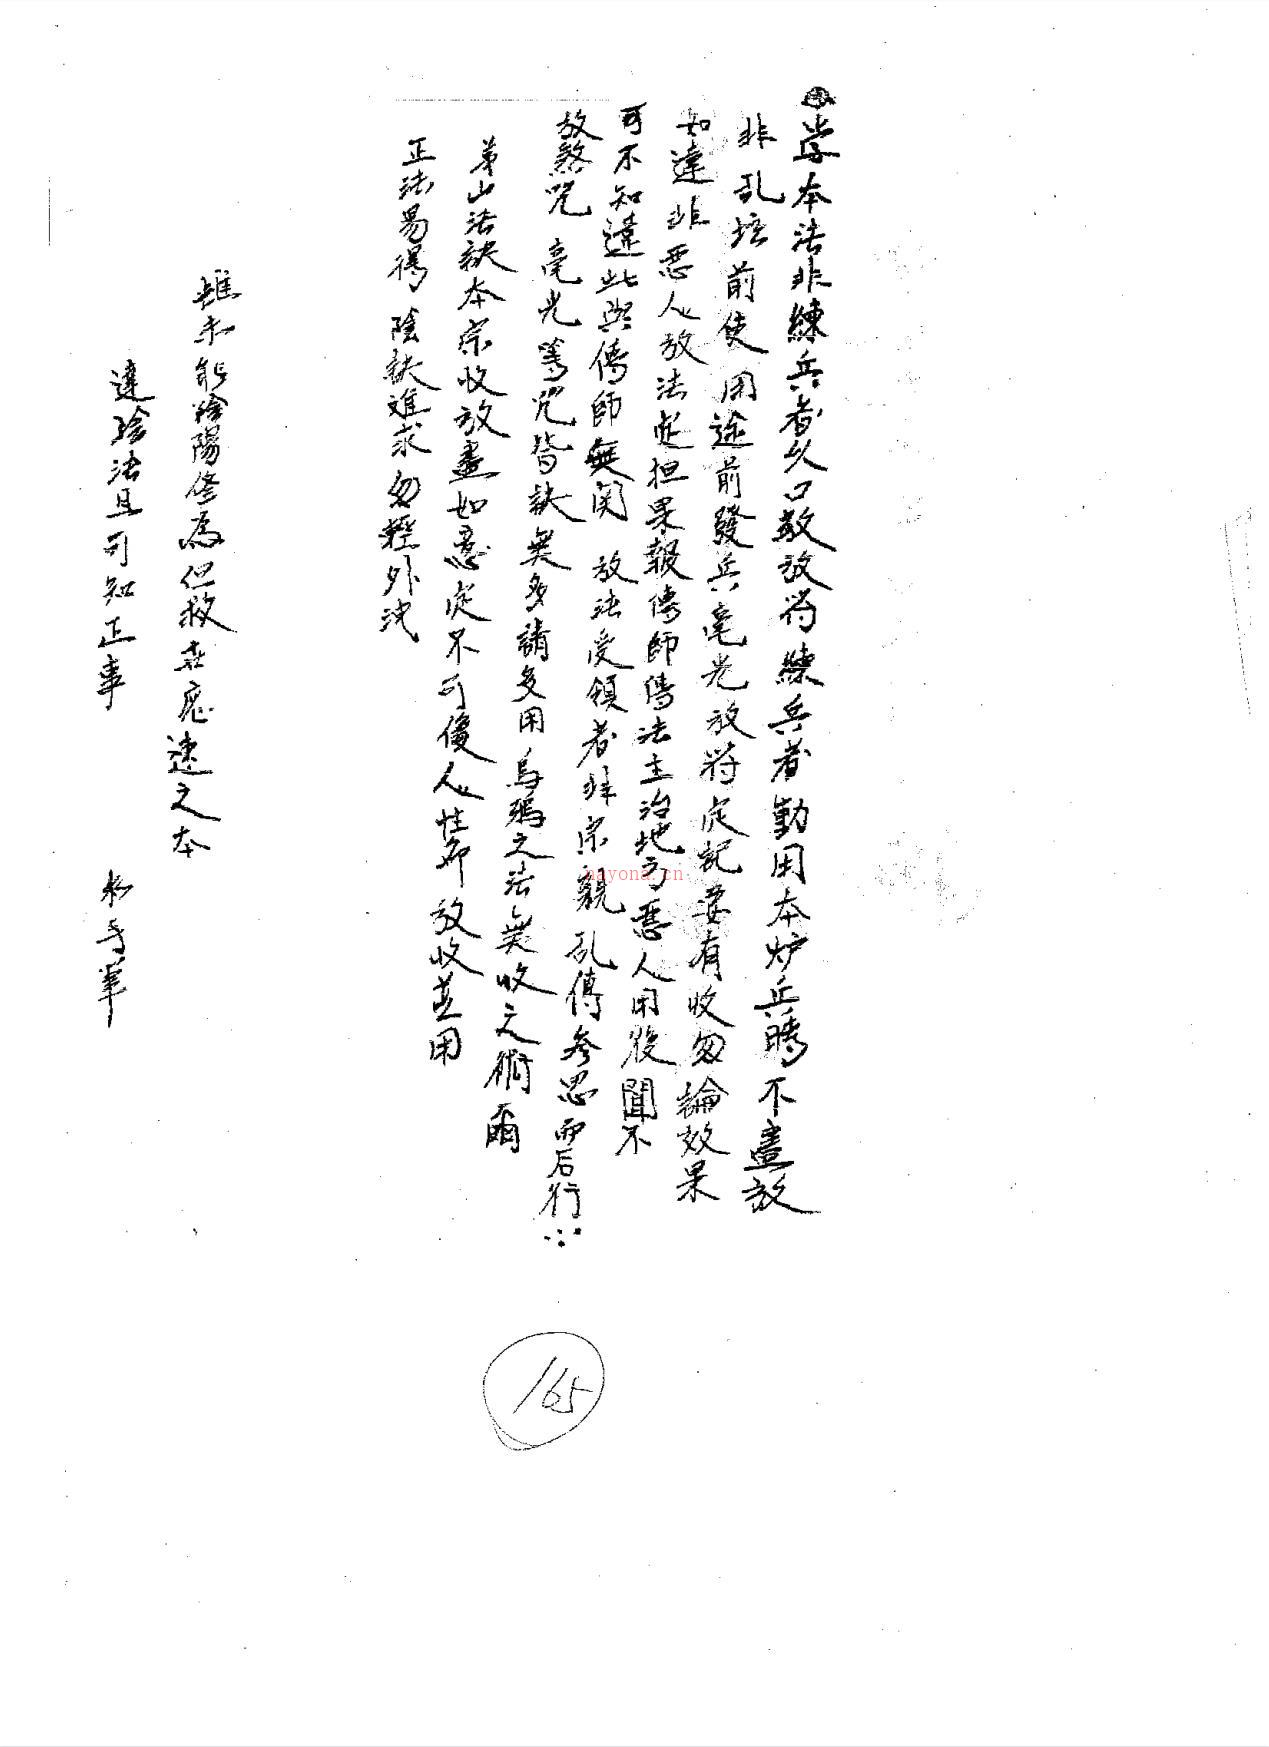 学本法非練兵者久口敬放符練兵者勤用本炉兵時不盡放
非亂坛前使用途前發兵毫光放将定記要有收勿論效果
如違非惡人放法定担果報傳師傳法主治地方惡人用後聞不
可不知違此與傳師無関 放法受領者非宗親亂傳參思而后行
放煞咒毫光等咒皆訣無多請多用烏鴉之法無收之術爾
茅山法訣本宗收放盡如意定不可傷人性命放收並用
正法易得陰訣進求勿輕外洩
雖未能陰陽修為但救世應達之本
達陰法且可知正事
nayona.cn
165